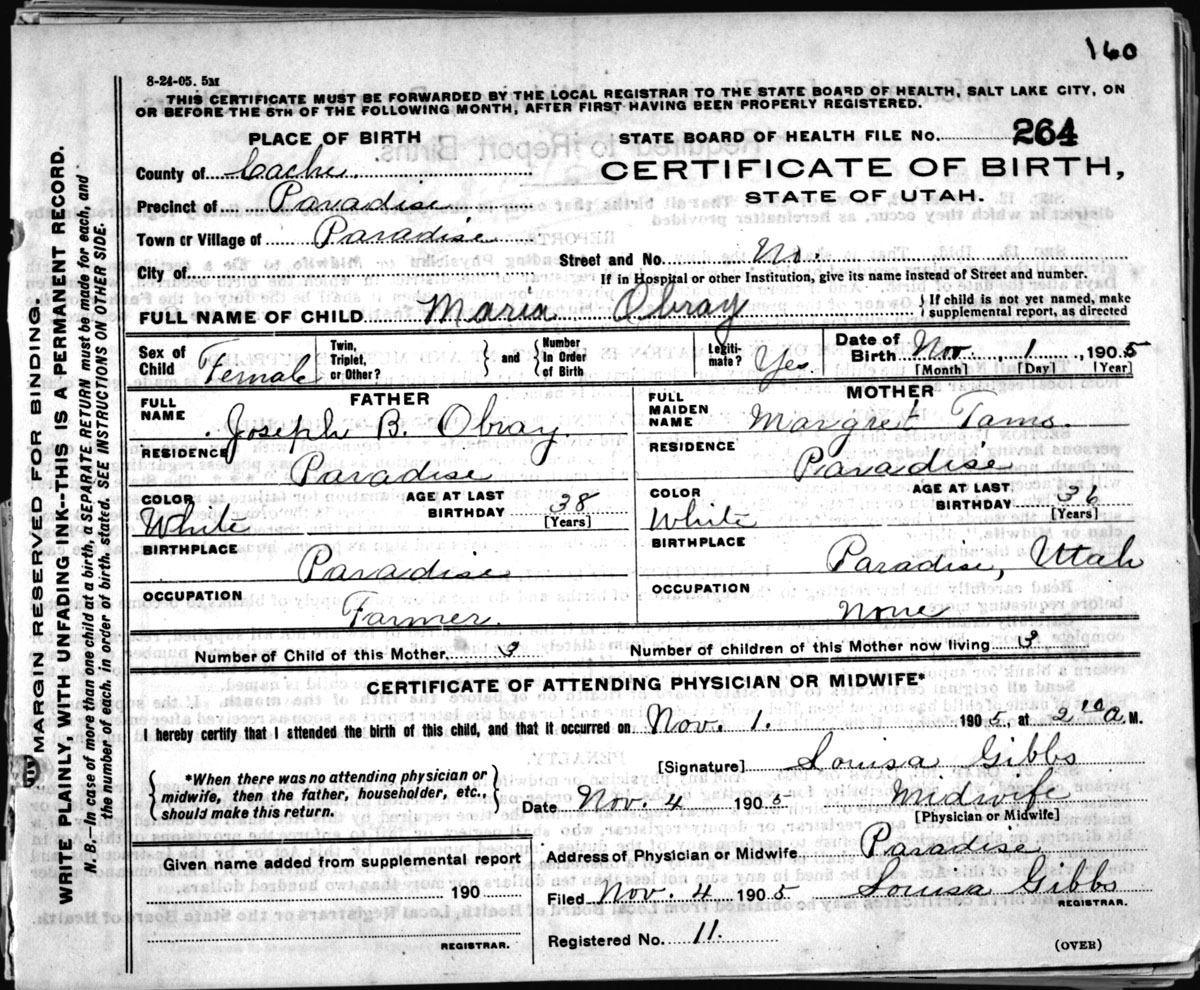 160
8-24-05. 5M
THIS CERTIFICATE MUST BE FORWARDED BY THE LOCAL REGISTRAR TO THE STATE BOARD OF HEALTH, SALT LAKE CITY, ON
OR BEFORE THE 5TH OF THE FOLLOWING MONTH, AFTER FIRST HAVING BEEN PROPERLY REGISTERED.
PLACE OF BIRTH
STATE BOARD OF HEALTH FILE NO. 264
County of Cache
CERTIFICATE OF BIRTH,
STATE OF UTAH.
Precinct of Paradise
Town or Village of Paradise
Street and No. No.
City of
If in Hospital or other Institution, give its name instead of Street and number.
FULL NAME OF CHILD Maria Obray
} If child is not yet named, make
supplemental report, as directed
Sex of Child Female
Twin, Triplet, or Other? } and { Number in Order of Birth
Legiti-mate? Yes
Date of Birth Nov. 1, 1905
[Month] [Day] [Year]
FATHER
FULL NAME Joseph B. Obray.
RESIDENCE Paradise
COLOR White
AGE AT LAST BIRTHDAY 38 [Years]
BIRTHPLACE Paradise
OCCUPATION Farmer.
MOTHER
FULL MAIDEN NAME Margret Tams.
RESIDENCE Paradise
COLOR White
AGE AT LAST BIRTHDAY 36 [Years]
BIRTHPLACE Paradise, Utah
OCCUPATION None
Number of Child of this Mother 3
Number of children of this Mother now living 3
CERTIFICATE OF ATTENDING PHYSICIAN OR MIDWIFE*
I hereby certify that I attended the birth of this child, and that it occurred on Nov. 1. 1905, at 2 10 a M.
[Signature] Louisa Gibbs
{ *When there was no attending physician or
midwife, then the father, householder, etc.,
should make this return. }
Date Nov. 4 1905
Midwife
[Physician or Midwife]
Given name added from supplemental report
190
REGISTRAR.
Address of Physician or Midwife Paradise
Filed Nov. 4 1905 Louisa Gibbs
REGISTRAR.
Registered No. 11.
(OVER)
MARGIN RESERVED FOR BINDING.
WRITE PLAINLY, WITH UNFADING INK--THIS IS A PERMANENT RECORD.
N. B.--In case of more than one child at a birth, a SEPARATE RETURN must be made for each, and
the number of each. in order of birth. stated. SEE INSTRUCTIONS ON OTHER SIDE.